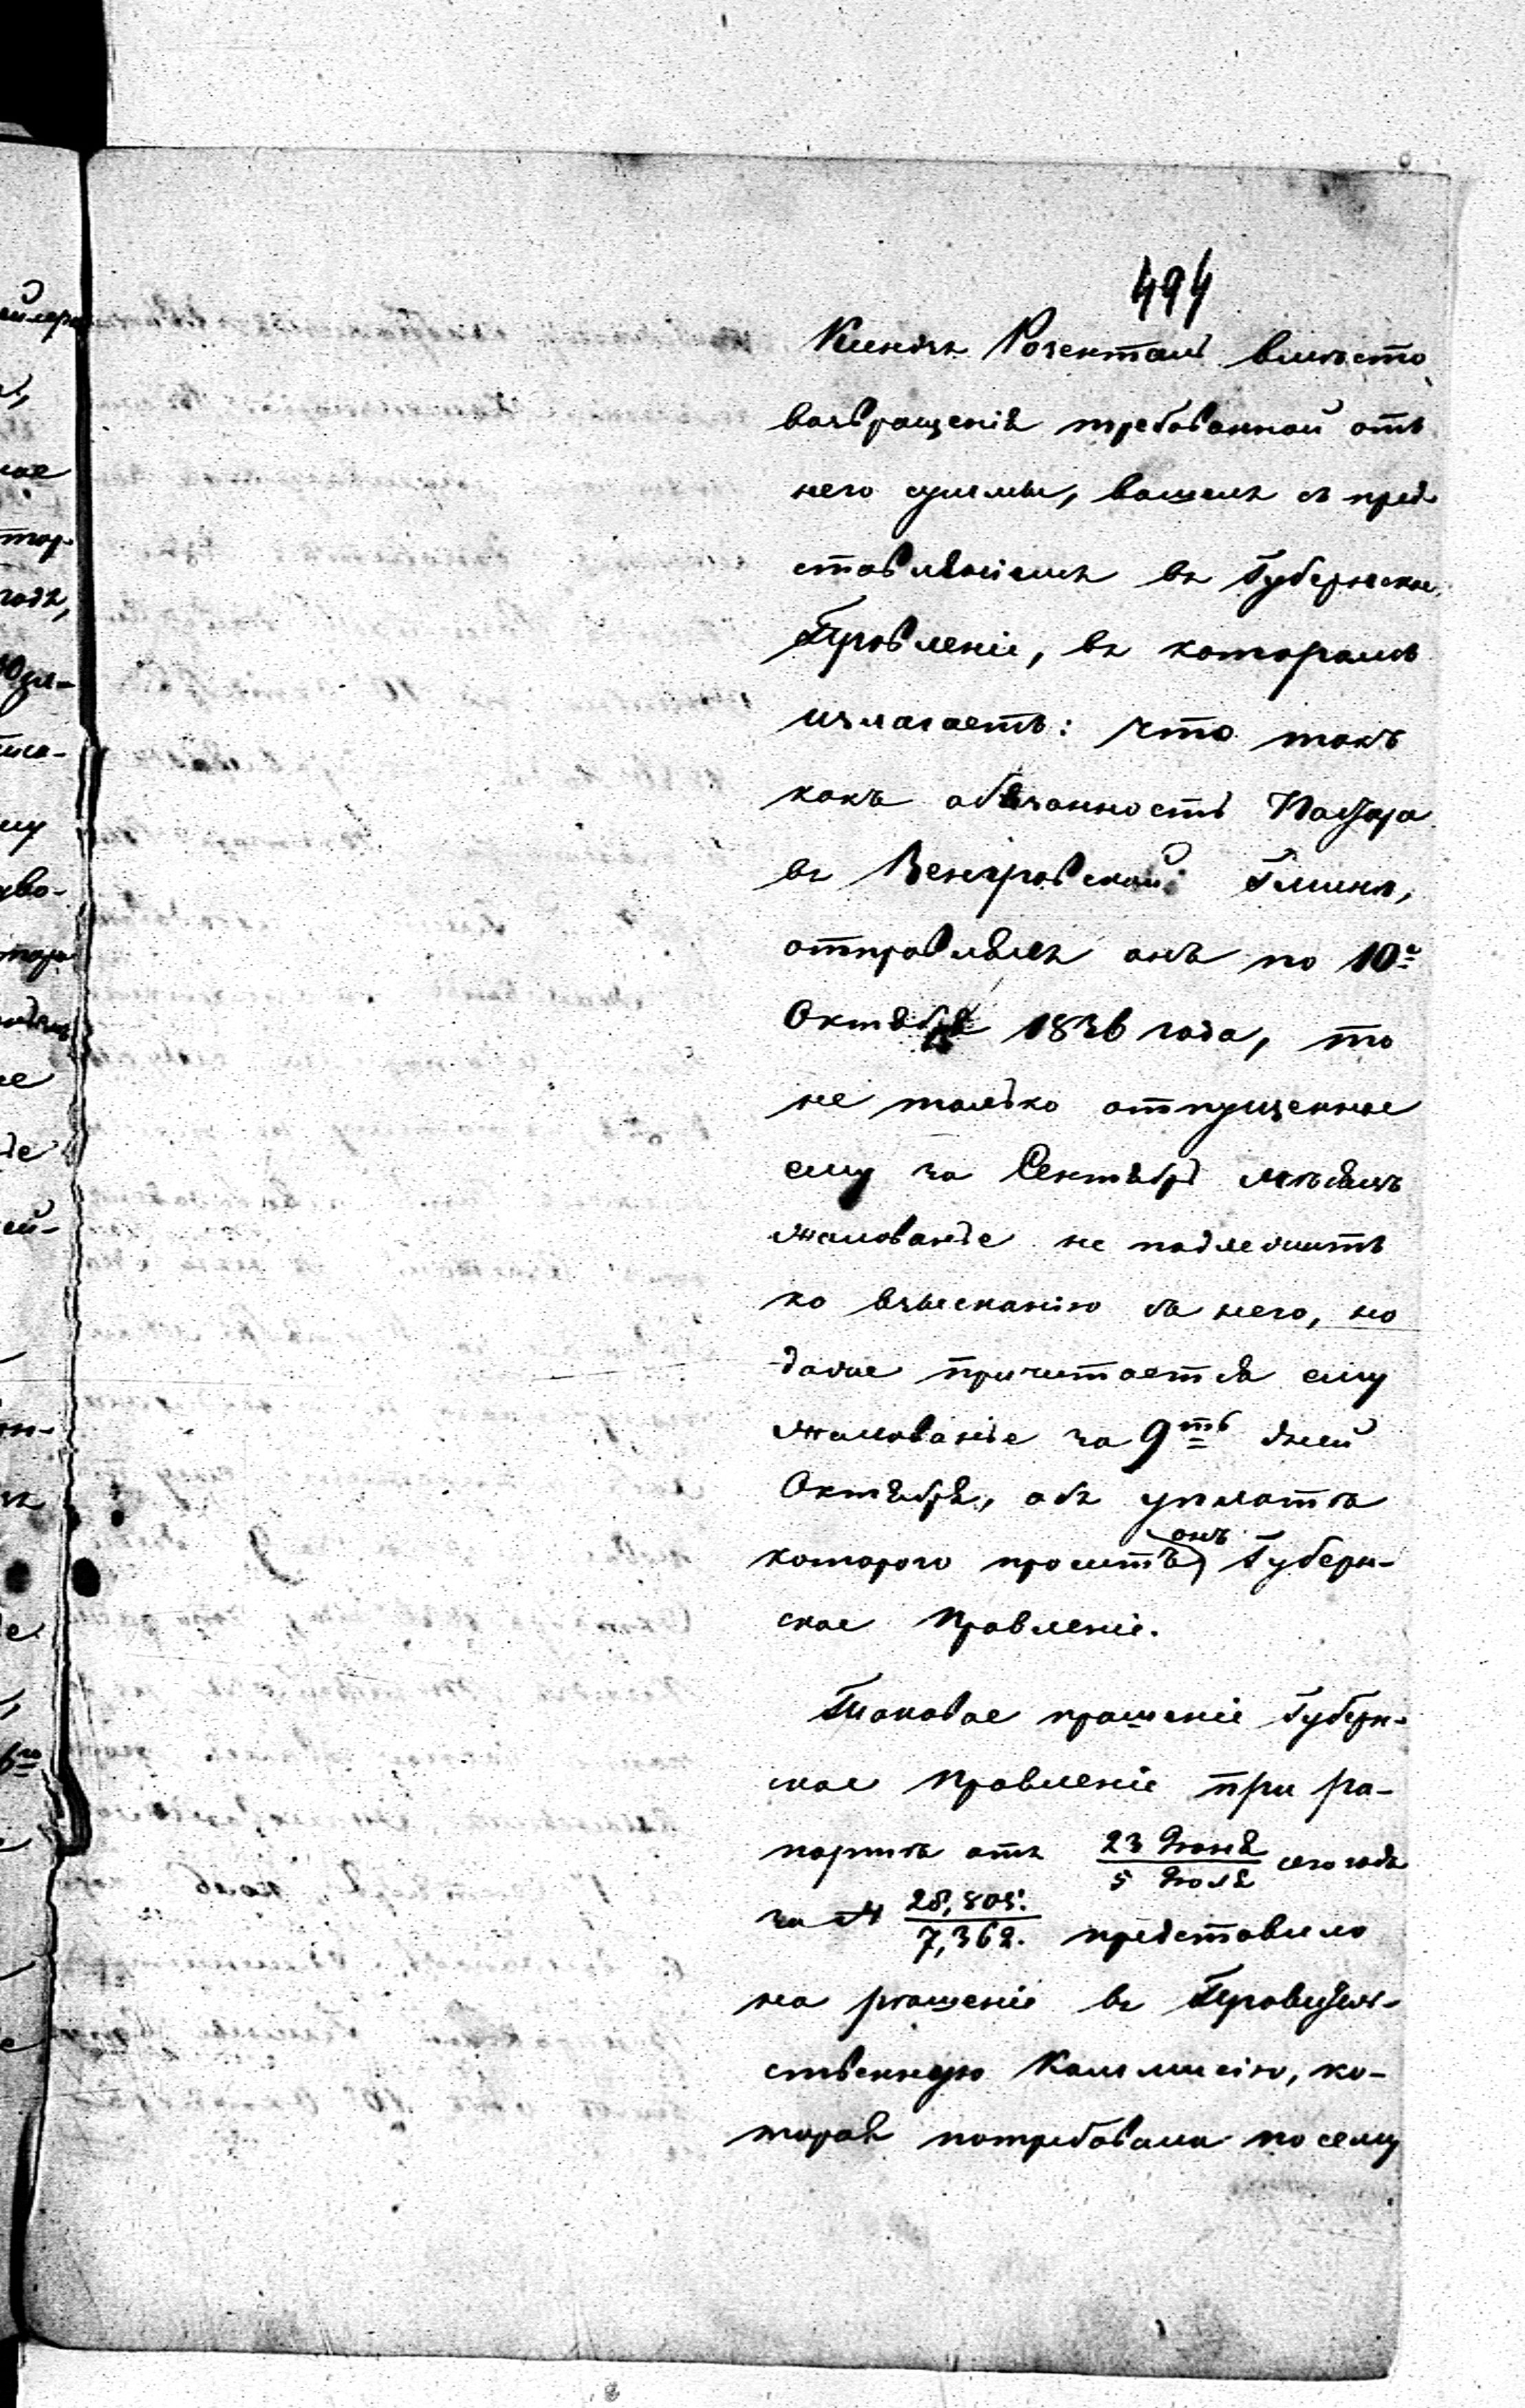 494
Ксендзъ Розенталь вмѣсто
возвращенія требованной отъ
него суммы, вошелъ съ пред-
ставленіемъ въ Губернское
Правленіе, въ которомъ
излагаетъ: что такъ
какъ обязанность Пастора
въ Венгровской Гминѣ,
отправлялъ онъ по 10е
Октября 1836 года, то
не только отпущенное
ему за Сентябрь мѣсяцъ
жалованье не подлежитъ
ко взысканію съ него, но
даже причитается ему
жалованье за 9ть дней
Октября, объ уплатѣ
котораго проситъ онъ Губерн-
ское Правленіе.
Таковое прошеніе Губерн-
ское Правленіе при ра-
портѣ отъ 23 Іюня / 5 Іюля сего года
за № 28,805. / 7,362. представило
на рѣшеніе въ Правитель-
ственную Коммисію, ко-
торая потребовала по сему